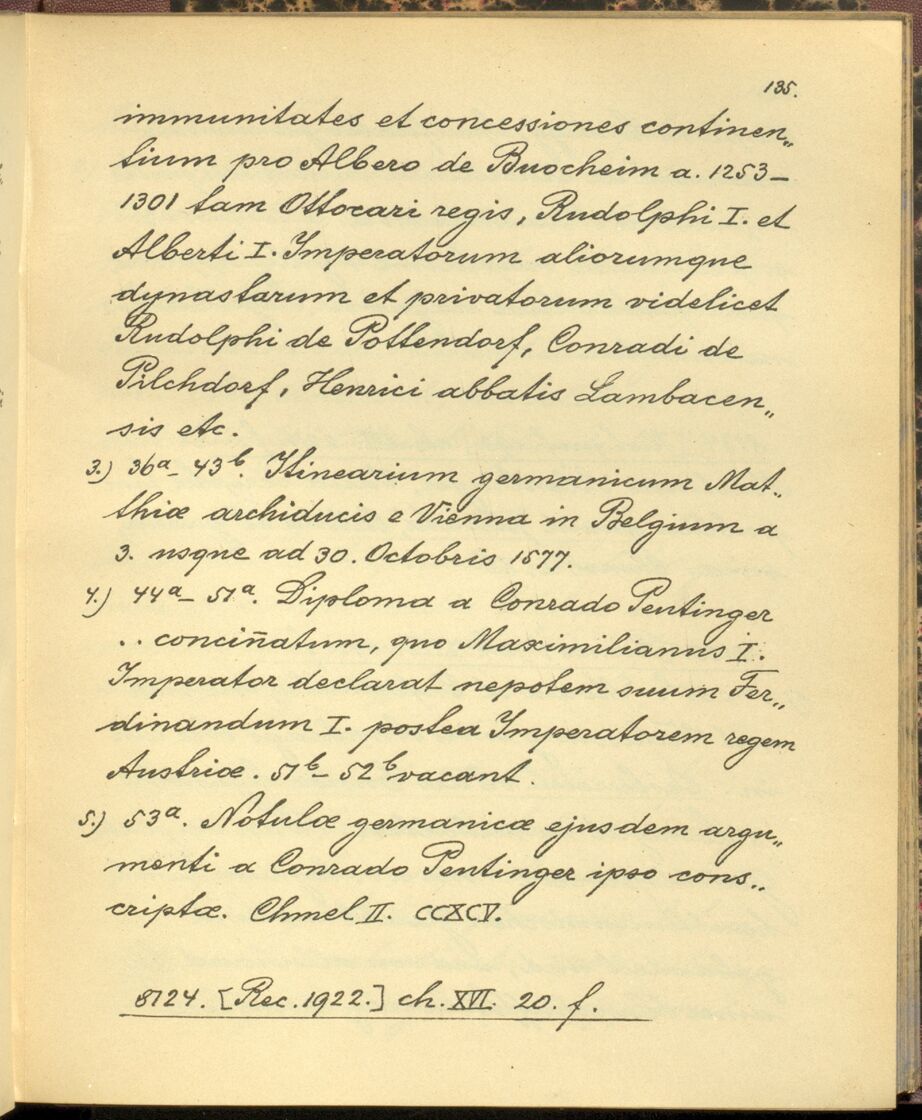 135.
immunitates et concessiones continen„
tium pro Albero de Buocheim a. 1253–
1301 tam Ottocari regis, Rudolphi I. et
Alberti I. Imperatorum aliorumque
dynastarum et privatorum videlicet
Rudolphi de Pottendorf, Conradi de
Pilchdorf, Henrici abbatis Lambacen„
sis etc.
3.) 36a– 43b. Itinearium germanicum Mat„
thiæ archiducis e Vienna in Belgium a
3. usque ad 30. Octobris 1577.
4.) 44a– 51a. Diploma a Conrado Peutinger
.. conciñatum, quo Maximilianus I.
Imperator declarat nepotem suum Fer„
dinandum I. postea Imperatorem regem
Austriæ. 51b– 52b vacant.
5.) 53a. Notulæ germanicæ ejusdem argu„
menti a Conrado Peutinger ipso cons„
criptæ. Chmel II. CCXCV.
8124. [Rec. 1922.] ch. XVI. 20. f.